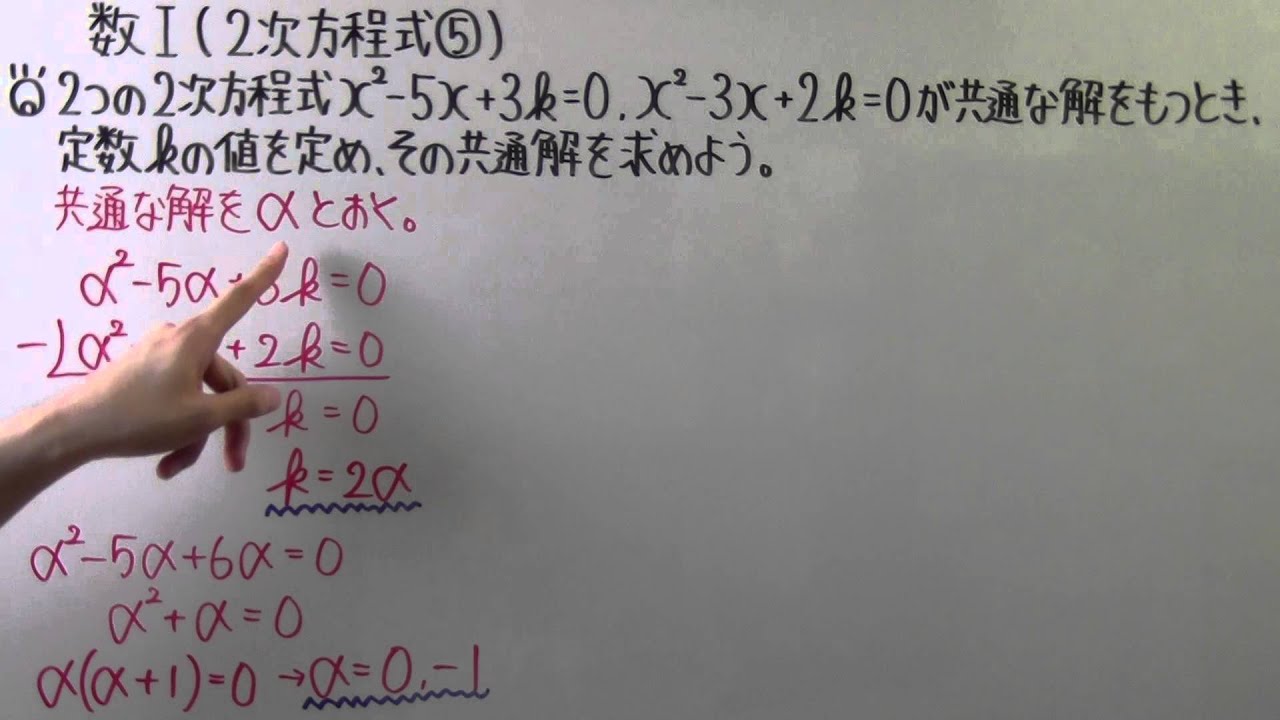 数Ⅰ(2次方程式⑤)
2つの2次方程式x²-5x+3k=0, x²-3x+2k=0が共通な解をもつとき、
定数kの値を定め、その共通解を求めよう。
共通な解をαとおく。
α²-5α+3k=0
-)α² +2k=0
k=0
k=2α
α²-5α+6α=0
α²+α=0
α(α+1)=0→α=0,-1